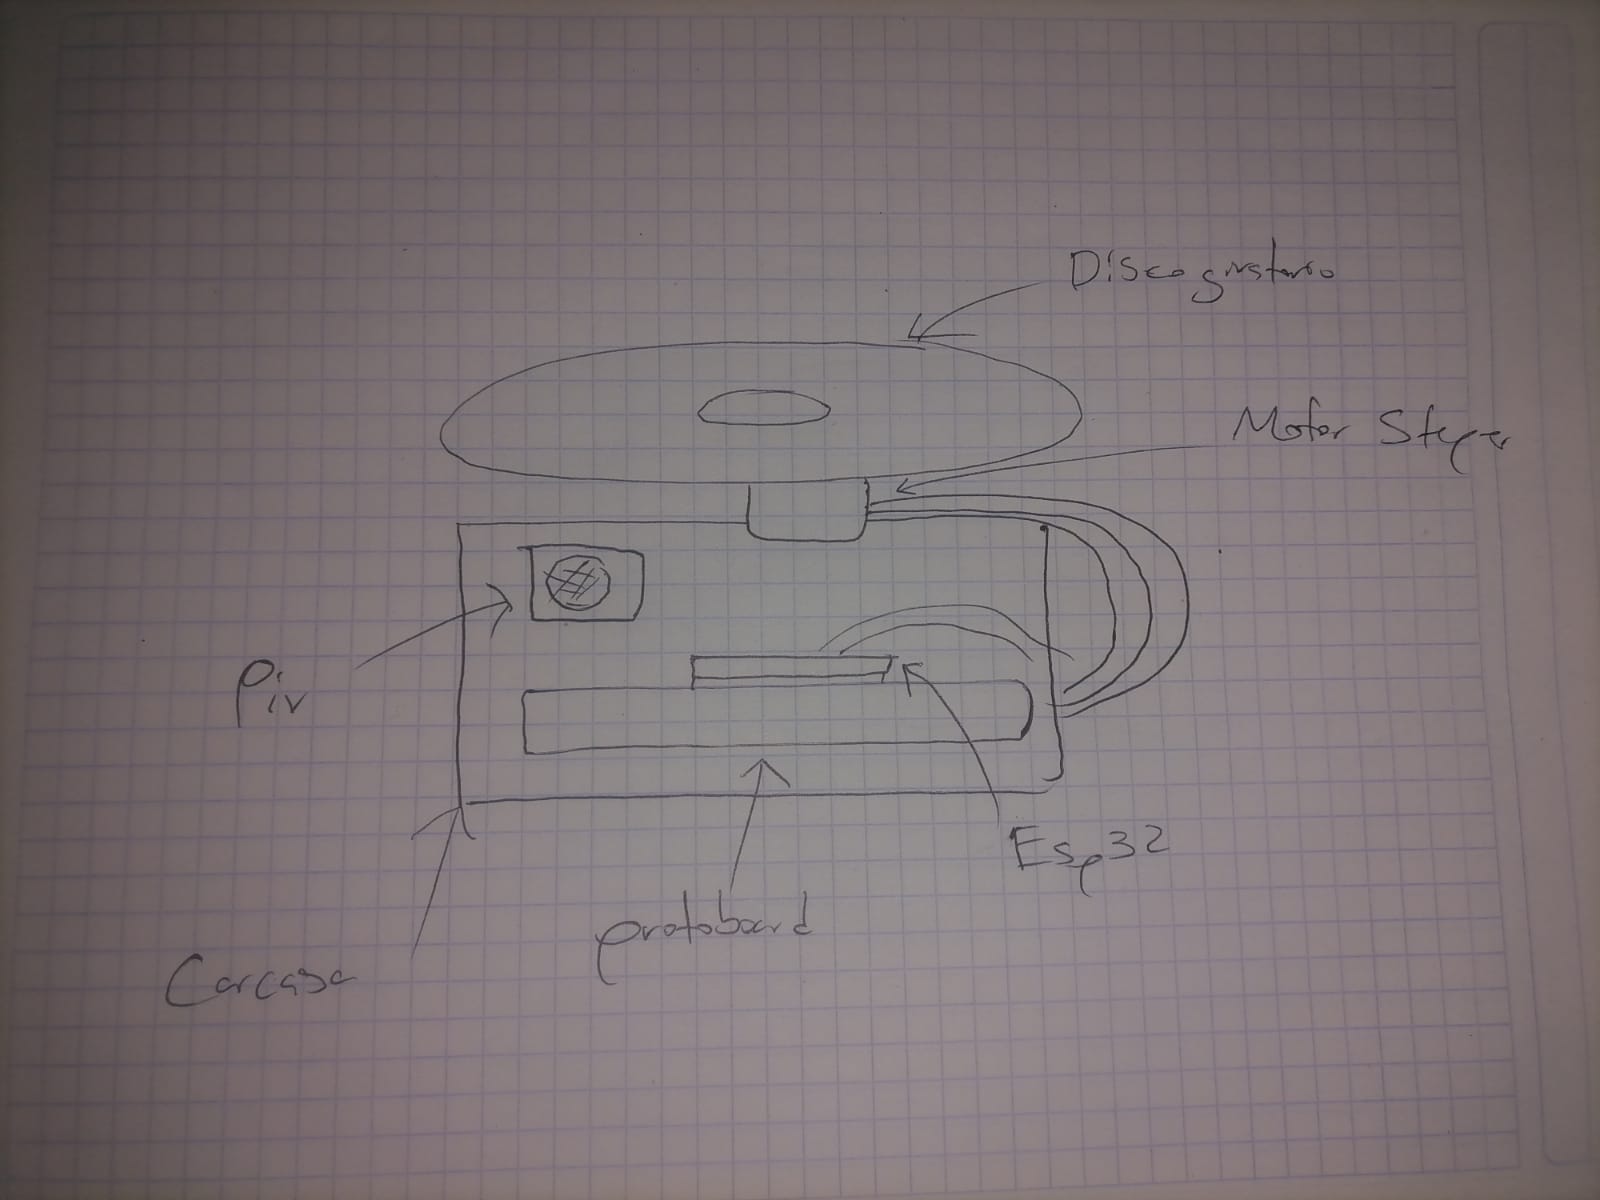 Disco giratorio
Motor Steper
Pir
Esp32
protoboard
Carcasa